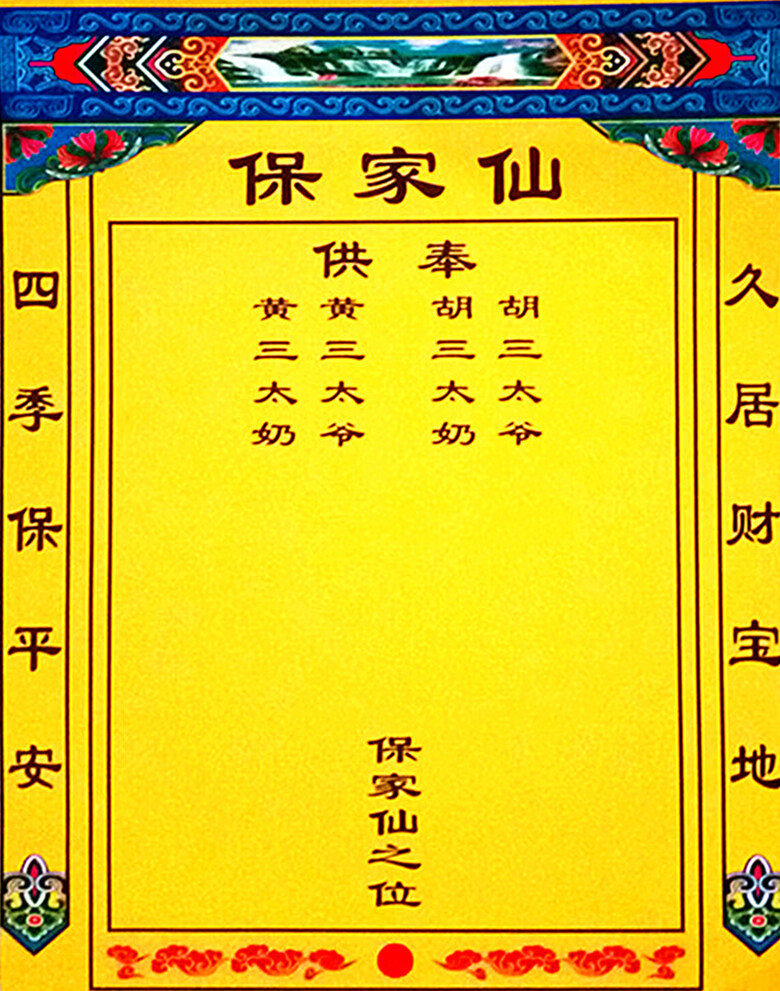 保家仙
供奉
胡三太爷
胡三太奶
黄三太爷
黄三太奶
保家仙之位
久居财宝地
四季保平安